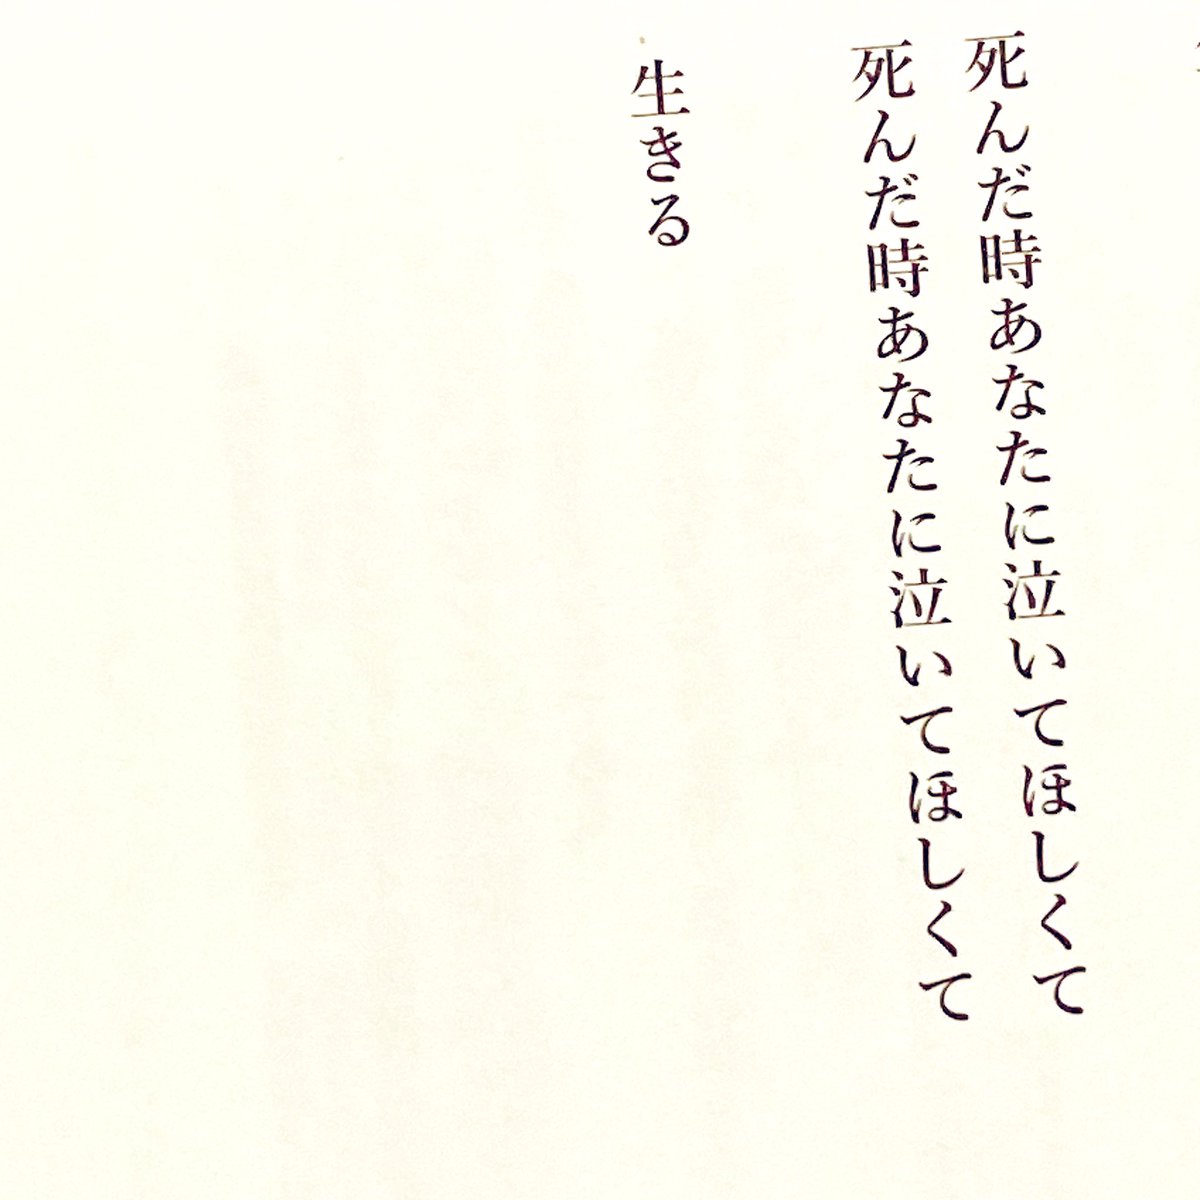 死んだ時あなたに泣いてほしくて
死んだ時あなたに泣いてほしくて
生きる